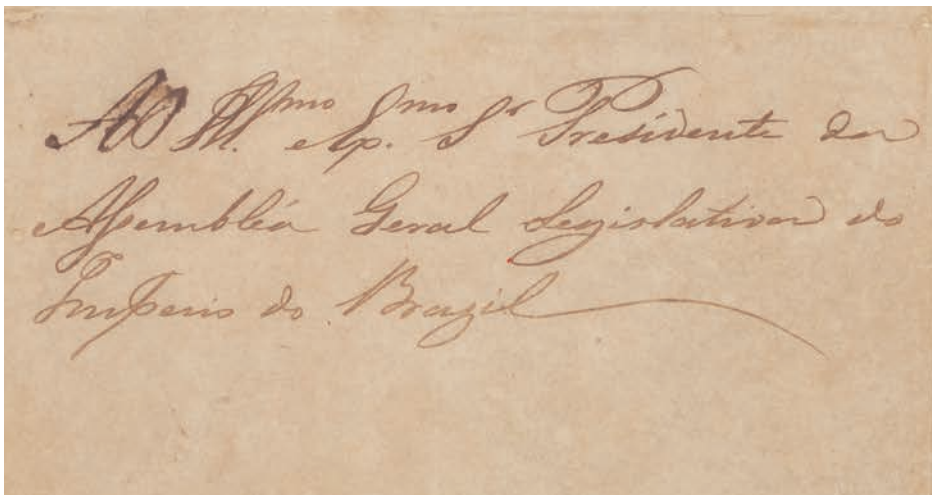 Ao Ill.mo Exmo Sr Presidente da
Assembléa Geral Legislativa do
Imperio do Brazil